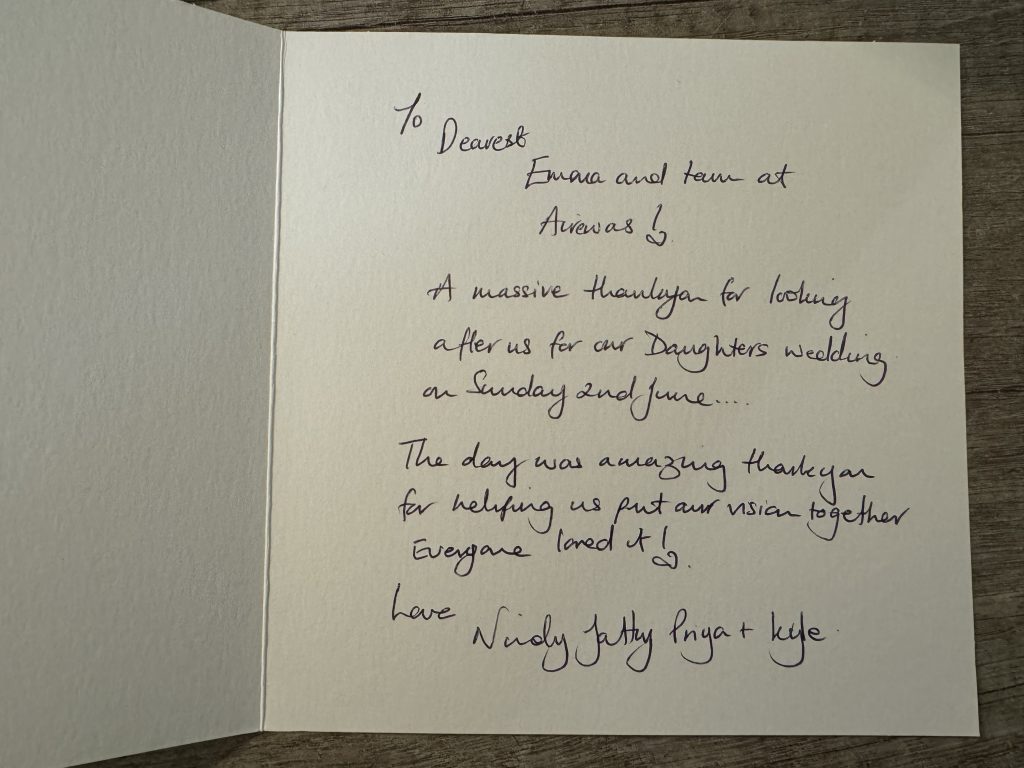 To
Dearest
Emma and team at
Airewas!
A massive thankyou for looking
after us for our Daughters wedding
on Sunday 2nd June....
The day was amazing thankyou
for helping us put our vision together
Everyone loved it!
Love
Nindy Priya + Kyle